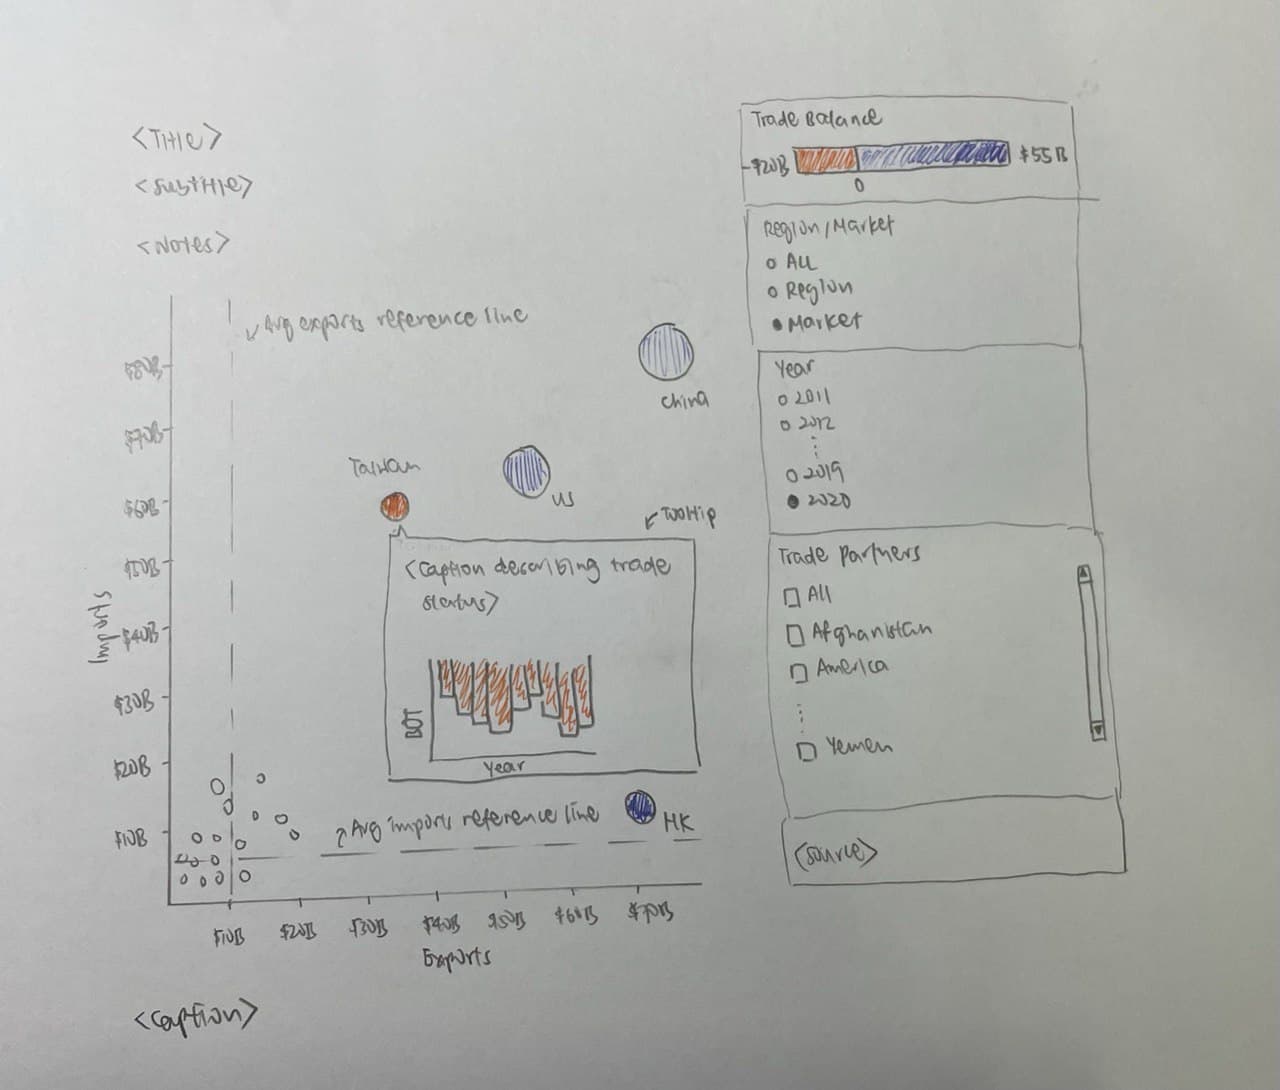 <Title>
<Subtitle>
<Notes>
Avg exports reference line
$80B
$70B
$60B
$50B
$40B
$30B
$20B
$10B
Imports
China
Taiwan
US
Tooltip
<Caption describing trade
status>
BOT
Year
Avg imports reference line
HK
$10B
$20B
$30B
$40B
$50B
$60B
$70B
Exports
<Caption>
Trade Balance
-$20B
$55B
0
Region/Market
All
Region
Market
Year
2011
2012
2019
2020
Trade Partners
All
Afghanistan
America
Yemen
<source>